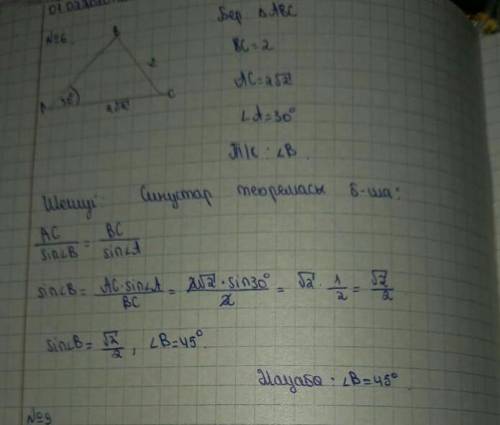 №6.
Бер ΔABC
BC=2
AC=2√2
∠A=30°
Т/К: ∠B.
B
2
A 30° C
2√2
Шешуі: Синустар теоремасы б-ша:
AC/sin∠B = BC/sin∠A
sin∠B = AC·sin∠A/BC = 2√2·sin30°/2 = √2·1/2 = √2/2
sin∠B = √2/2, ∠B=45°.
Жауабы: ∠B=45°.
№9